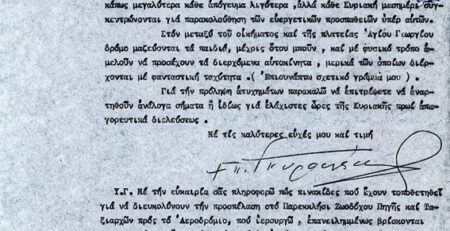 κάπως μεγαλύτερα κάθε ἀπόγευμα λιγότερα, ἀλλά κάθε Κυριακή μεσημέρι συγ-
κεντρώνονται γιά παρακολούθηση τῶν εὐεργετικῶν προσπαθειῶν ὑπέρ αὐτῶν.
Στόν μεταξύ τοῦ οἰκήματος καί τῆς πλατείας Ἁγίου Γεωργίου
δρόμο μαζεύονται τά παιδιά, μέχρις ὅτου μποῦν , καί μέ φυσικό τρόπο ἀ-
μελοῦν νά προσέχουν τά διερχόμενα αὐτοκίνητα , μερικά τῶν ὁποίων διέρ-
χονται μέ φανταστική ταχύτητα .( Ἐπισυνάπτω σχετικό γράμμα μου ).
Γιά τήν πρόληψη ἀτυχημάτων παρακαλῶ νά ἐπιτρέψετε νά ἀναρ-
τηθοῦν ἀνάλογα σήματα ἤ ἰδίως γιά ἐλάχιστες ὧρες τῆς Κυριακῆς πρωΐ ἀπα-
γορευτικά διελεύσεως .
Μέ τίς καλύτερες εὐχές μου καί τιμή
Υ.Γ. Μέ τήν εὐκαιρία σᾶς πληροφορῶ πώς πινακίδες πού ἔχουν τοποθετηθεῖ
γιά νά διευκολύνουν τήν προσπέλαση στό Παρεκκλήσι Ζωοδόχου Πηγῆς καί Τα-
ξιαρχῶν πρός τό Ἀεροδρόμιο, πού ἱερουργῶ , ἐπανειλημμένως βρίσκονται